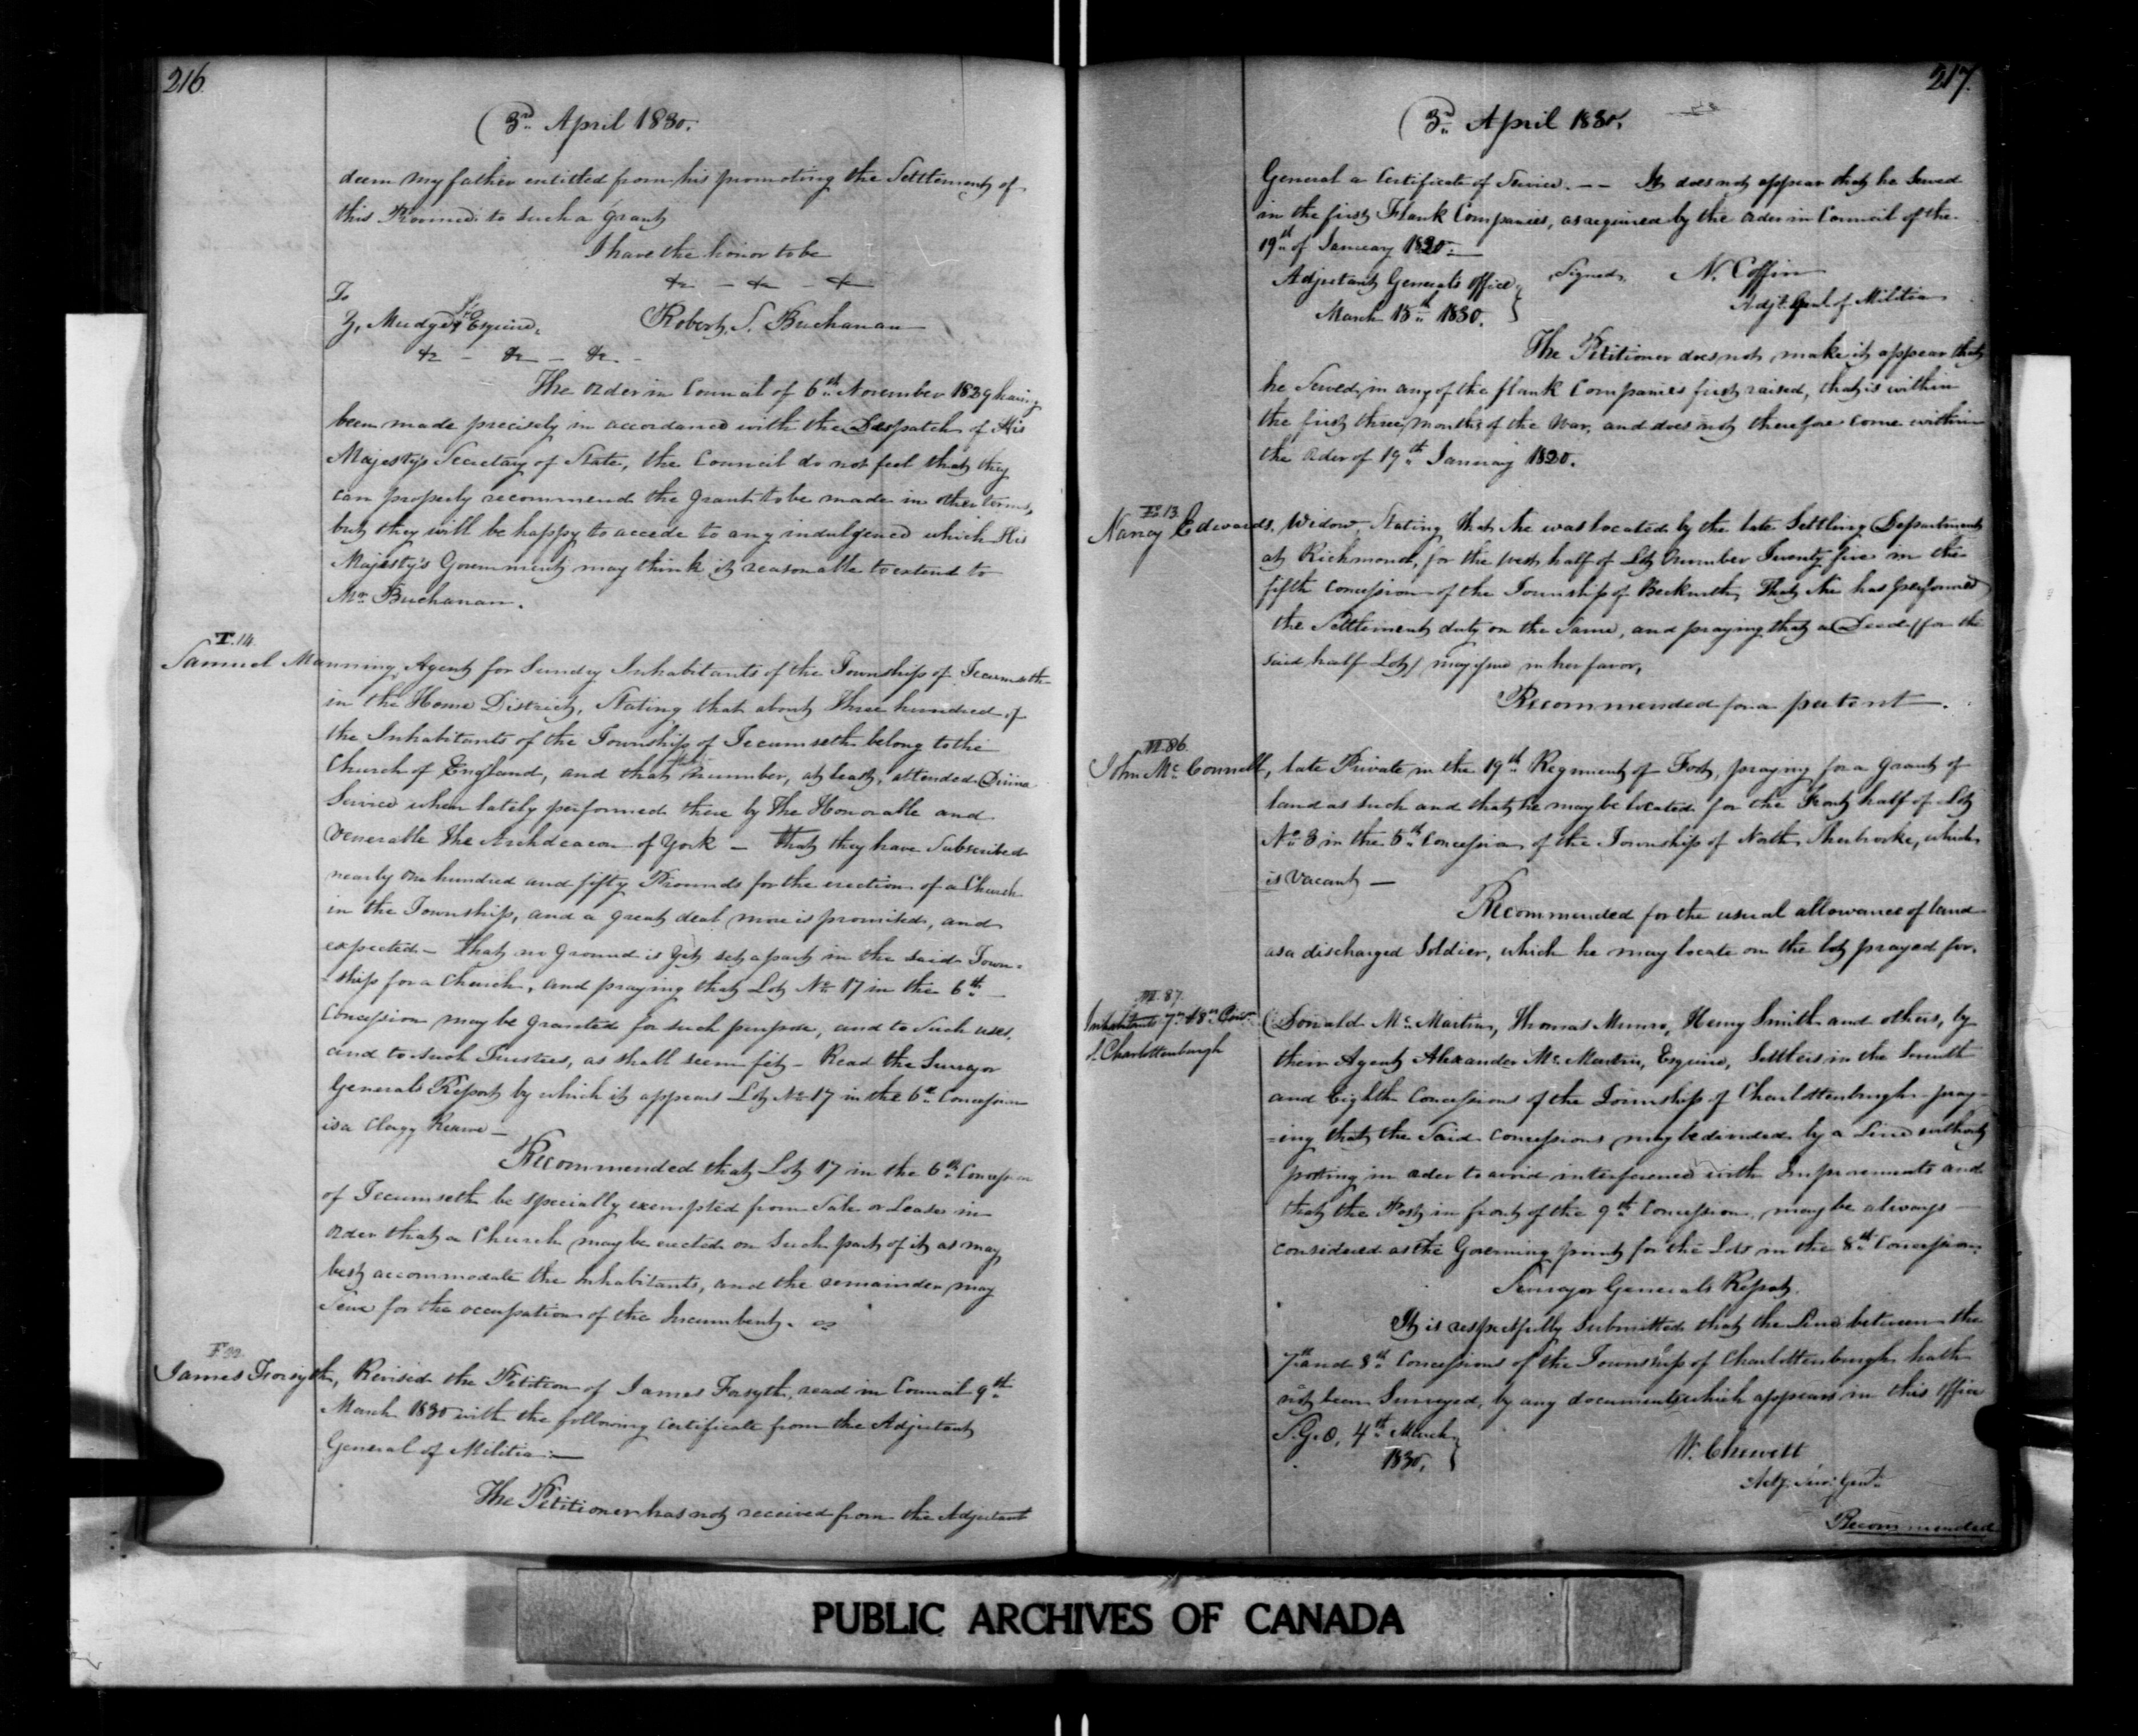 216
(3rd April 1830.
deem my father entitled from his promoting the Settlement of
this Province to such a grant
I have the honor to be
&c - &c - &c
To
Z. Mudge Esquire, Robert S. Buchanan
&c - &c - &c -
The order in Council of 6th November 1829 having
been made precisely in accordance with the Despatch of His
Majesty's Secretary of State, the Council do not feel that they
can properly recommend the grant to be made in other terms,
but they will be happy to accede to any indulgence which His
Majesty's Government may think it reasonable to extend to
Mr Buchanan.
T.14.
Samuel Manning, Agent for Sundry Inhabitants of the Township of Tecumseth
in the Home District, Stating that about three hundred of
the Inhabitants of the Township of Tecumseth belong to the
Church of England, and that number, at least, attended Divine
Service when lately performed there by the Honorable and
Venerable the Archdeacon of York - That they have Subscribed
nearly one hundred and fifty Pounds for the erection of a Church
in the Township, and a great deal more is promised, and
expected - That no Ground is yet set apart in the said Town-
-ship for a Church, and praying that Lot No 17 in the 6th
Concession may be granted for such purpose, and to such uses,
and to such Trustees, as shall seem fit - Read the Surveyor
Generals Report by which it appears Lot No 17 in the 6th Concession
is a Clergy Reserve -
Recommended that Lot 17 in the 6th Concession
of Tecumseth be specially exempted from Sale or Lease in
order that a Church may be erected on Such part of it as may
best accommodate the inhabitants, and the remainder may
Serve for the occupation of the Incumbent.
F 99.
James Forsyth, Revised the Petition of James Forsyth, read in Council 9th
March 1830 with the following certificate from the Adjutant
General of Militia :-
The Petitioner has not received from the Adjutant
217.
(3rd April 1830.
General a Certificate of Service. -- It does not appear that he Served
in the first Flank Companies, as required by the order in Council of the
19th of January 1820. -
Adjutant Generals Office } Signed, N. Coffin
March 15th 1830. } Adjt. Genl. of Militia
The Petitioner does not make it appear that
he Served in any of the flank Companies first raised, that is within
the first three months of the War, and does not therefore come within
the order of 19th January 1820.
E 13
Nancy Edwards, Widow, Stating that she was located by the late Settling Department
at Richmond, for the West half of Lot Number Twenty five in the
fifth concession of the Township of Beckwith, That she has performed
the Settlement duty on the Same, and praying that a Deed (for the
said half Lot) may issue in her favor,
Recommended for a patent.
M 86.
John McConnell, late Private in the 19th Regiment of Foot, praying for a grant of
land as such and that he may be located for the Front half of Lot
No 3 in the 5th Concession of the Township of North Sherbrooke, which
is Vacant -
Recommended for the usual allowance of land
as a discharged Soldier, which he may locate on the lot prayed for.
M. 87.
Inhabitants 7th & 8th Con.
Charlottenburgh
Donald McMartin, Thomas Munro, Henry Smith and others, by
their Agent Alexander McMartin, Esquire, Settlers in the Seventh
and Eighth Concessions of the Township of Charlottenburgh - pray-
-ing that the Said Concessions may be divided by a Line without
posting in order to avoid interference with Improvements and
that the Post in front of the 9th Concession, may be always
considered as the Governing point for the Lots in the 8th Concession.
Surveyor Generals Report.
It is respectfully Submitted that the Line between the
7th and 8th Concessions of the Township of Charlottenburgh hath
not been Surveyed, by any documents which appears in this Office
S.G.O. 4th March } W. Chewett
1830. } Actg. Sur. Genl.
Recommended
PUBLIC ARCHIVES OF CANADA